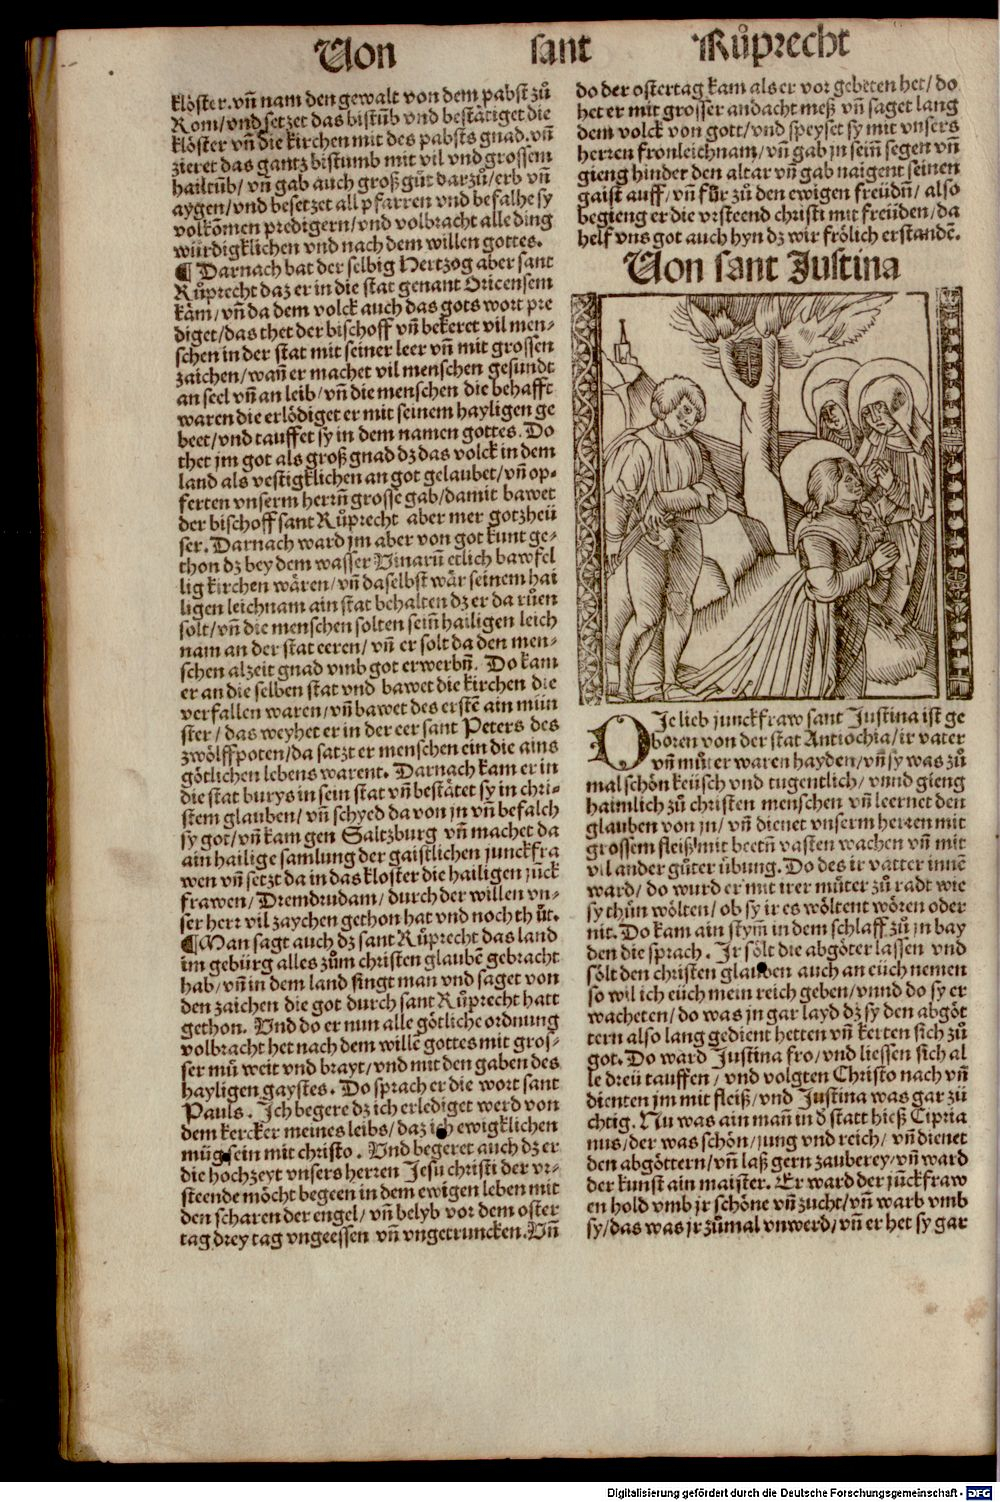 Von sant Růprecht
klöster. vñ nam den gewalt von dem pabst zů
Rom/ vnd setzet das bistůb vnd bestätiget die
klöster vñ die kirchen mit des pabsts gnad. vñ
zieret das gantz bistumb mit vil vnd grossem
hailtůb/ vñ gab auch groß gůt darzů/ erb vñ
aygen/ vnd besetzet all pfarren vnd befalhe sy
volkõmen predigern/ vnd volbracht alle ding
würdigklichen vnd nach dem willen gottes.
¶ Darnach bat der selbig Hertzog aber sant
Růprecht daz er in die stat genant Oricensem
käm/ vñ da dem volck auch das gots wort pre
diget/ das thet der bischoff vñ bekeret vil men-
schen in der stat mit seiner leer vñ mit grossen
zaichen/ wañ er machet vil menschen gesundt
an seel vñ an leib/ vñ die menschen die behafft
waren die erlödiget er mit seinem hayligen ge
beet/ vnd tauffet sy in dem namen gottes. Do
thet jm got als groß gnad dz das volck in dem
land als vestigklichen an got gelaubet/ vñ op-
ferten vnserm herrñ grosse gab/ damit bawet
der bischoff sant Růprecht aber mer gotzheü
ser. Darnach ward jm aber von got kunt ge-
thon dz bey dem wasser Vinarũ etlich bawfel
lig kirchen wären/ vñ daselbst wär seinem hai
ligen leichnam ain stat behalten dz er da růen
solt/ vñ die menschen solten seiñ hailigen leich
nam an der stat eeren/ vñ er solt da den men-
schen alzeit gnad vmb got erwerbñ. Do kam
er an die selben stat vnd bawet die kirchen die
verfallen waren/ vñ bawet des erstẽ ain mün
ster/ das weyhet er in der eer sant Peters des
zwölffpoten/ da satzt er menschen ein die ains
götlichen lebens warent. Darnach kam er in
die stat burys in sein stat vñ bestätet sy in chri-
stem glauben/ vñ schyed da von jn vñ befalch
sy got/ vñ kam gen Saltzburg vñ machet da
ain hailige samlung der gaistlichen junckfra
wen vñ setzt da in das kloster die hailigen jůck
frawen/ Dremdrudam/ durch der willen vn-
ser herr vil zaychen gethon hat vnd noch thůt.
¶ Man sagt auch dz sant Růprecht das land
im gebürg alles zům christen glaubẽ gebracht
hab/ vñ in dem land singt man vnd saget von
den zaichen die got durch sant Růprecht hatt
gethon. Vnd do er nun alle götliche ordnung
volbracht het nach dem willẽ gottes mit gros-
ser mü weit vnd brayt/ vnd mit den gaben des
hayligen gaystes. Do sprach er die wort sant
Pauls. Ich begere dz ich erlediget werd von
dem kercker meines leibs/ daz ich ewigklichen
müg sein mit christo. Vnd begeret auch dz er
die hochzeyt vnsers herren Jesu christi der vr-
steende möcht begeen in dem ewigen leben mit
den scharen der engel/ vñ belyb vor dem oster
tag drey tag vngeessen vñ vngetruncken. Vñ
do der ostertag kam als er vor gebeten het/ do
het er mit grosser andacht meß vñ saget lang
dem volck von gott/ vnd speyset sy mit vnsers
herren fronleichnam/ vñ gab jn seiñ segen vñ
gieng hinder den altar vñ gab naigent seinen
gaist auff/ vñ für zů den ewigen freüdñ/ also
begieng er die vrsteend christi mit freüden/ da
helf vns got auch hyn dz wir frölich erstandẽ.
Von sant Justina
DIe lieb junckfraw sant Justina ist ge
boren von der stat Antiochia/ ir vater
vñ můter waren hayden/ vñ sy was zů
mal schön keüsch vnd tugentlich/ vnnd gieng
haimlich zů christen menschen vñ leernet den
glauben von jn/ vñ dienet vnserm herren mit
grossem fleiß/ mit beetñ vasten wachen vñ mit
vil ander gůter übung. Do des ir vatter innẽ
ward/ do wurd er mit irer můter zů radt wie
sy thůn wölten/ ob sy ir es wöltent wören oder
nit. Do kam ain stym̃ in dem schlaff zů jn bay
den die sprach. Ir sölt die abgöter lassen vnd
sölt den christen glauben auch an eüch nemen
so wil ich eüch mein reich geben/ vnnd do sy er
wacheten/ do was jn gar layd dz sy den abgöt
tern also lang gedient hetten vñ kerten sich zů
got. Do ward Justina fro/ vnd liessen sich al
le dreü tauffen/ vnd volgten Christo nach vñ
dienten jm mit fleiß/ vnd Justina was gar zü
chtig. Nu was ain mañ in d̕ statt hieß Cipria
nus/ der was schön/ jung vnd reich/ vñ dienet
den abgöttern/ vñ laß gern zauberey/ vñ ward
der kunst ain maister. Er ward der jůckfraw
en hold vmb jr schöne vñ zucht/ vñ warb vmb
sy/ das was jr zůmal vnwerd/ vñ er het sy gar
Digitalisierung gefördert durch die Deutsche Forschungsgemeinschaft - DFG